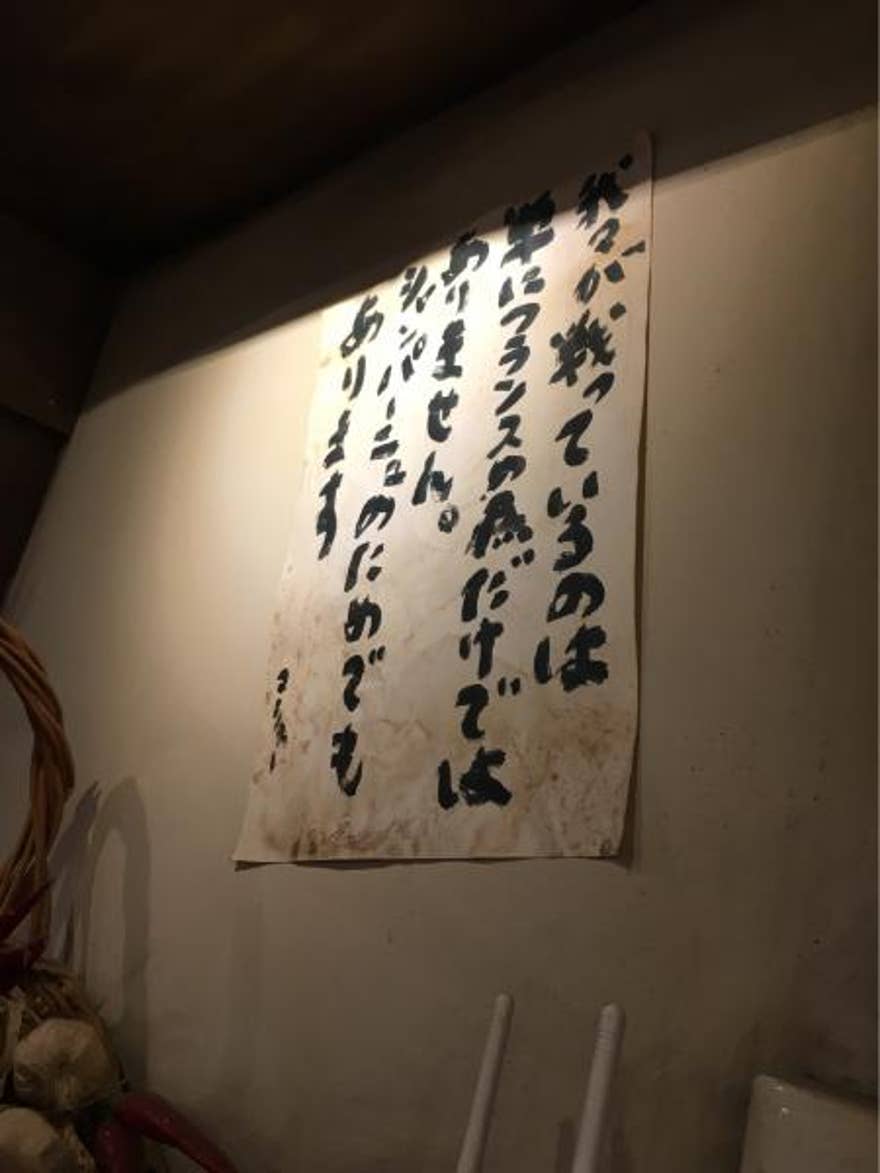 我々が戦っているのは
単にフランスの為だけでは
ありません。
シャンパーニュのためでも
あります